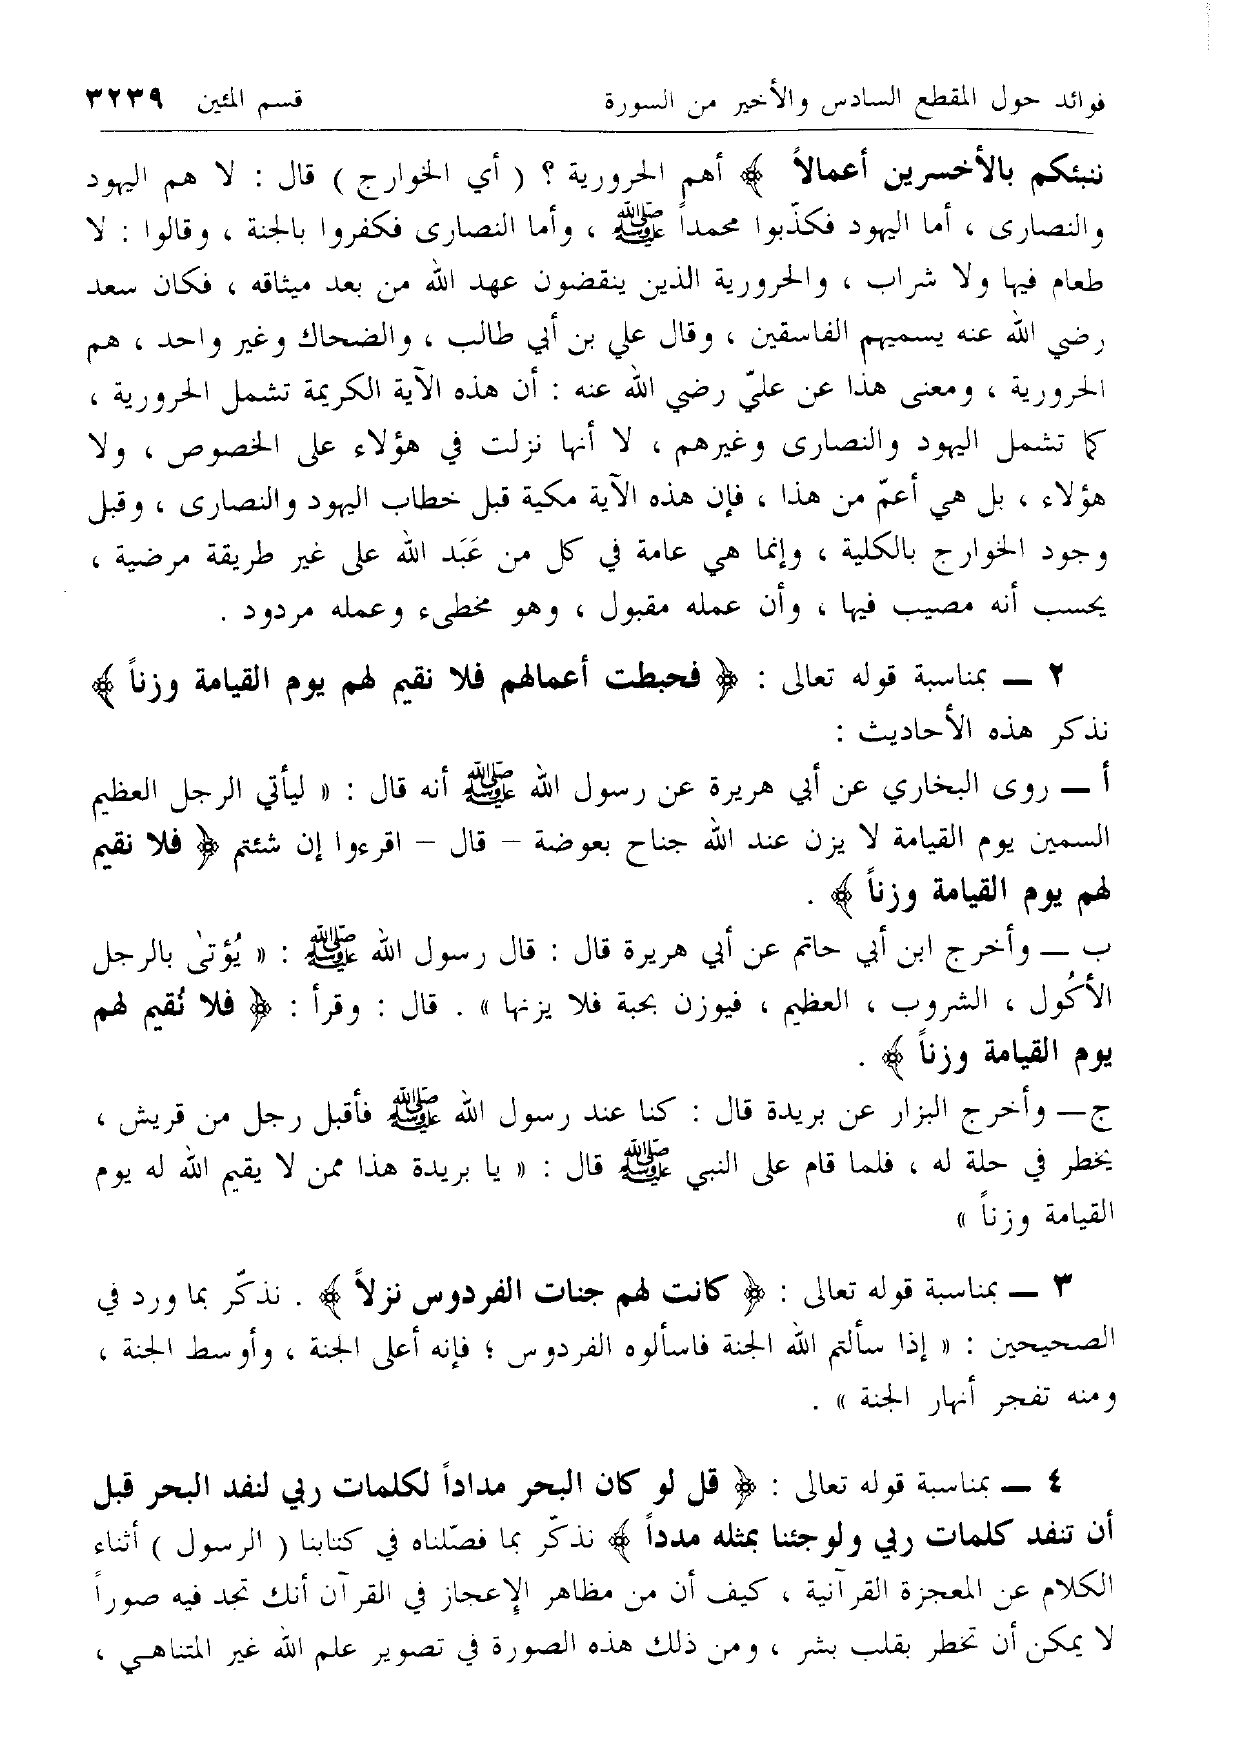 فوائد حول المقطع السادس والأخير من السورة قسم المئين ٣٢٣٩
ننبئكم بالأخسرين أعمالاً ﴾ أهم الحرورية ؟ ( أي الخوارج ) قال : لا هم اليهود
والنصارى ، أما اليهود فكذّبوا محمداً ﷺ ، وأما النصارى فكفروا بالجنة ، وقالوا : لا
طعام فيها ولا شراب ، والحرورية الذين ينقضون عهد الله من بعد ميثاقه ، فكان سعد
رضي الله عنه يسميهم الفاسقين ، وقال علي بن أبي طالب ، والضحاك وغير واحد ، هم
الحرورية ، ومعنى هذا عن عليّ رضي الله عنه : أن هذه الآية الكريمة تشمل الحرورية ،
كما تشمل اليهود والنصارى وغيرهم ، لا أنها نزلت في هؤلاء على الخصوص ، ولا
هؤلاء ، بل هي أعمّ من هذا ، فإن هذه الآية مكية قبل خطاب اليهود والنصارى ، وقبل
وجود الخوارج بالكلية ، وإنما هي عامة في كل من عَبَد الله على غير طريقة مرضية ،
يحسب أنه مصيب فيها ، وأن عمله مقبول ، وهو مخطىء وعمله مردود .
٢ ــ بمناسبة قوله تعالى : ﴿ فحبطت أعمالهم فلا نقيم لهم يوم القيامة وزناً ﴾
نذكر هذه الأحاديث :
أ ــ روى البخاري عن أبي هريرة عن رسول الله ﷺ أنه قال : « ليأتي الرجل العظيم
السمين يوم القيامة لا يزن عند الله جناح بعوضة – قال – اقرءوا إن شئتم ﴿ فلا نقيم
لهم يوم القيامة وزناً ﴾ .
ب ــ وأخرج ابن أبي حاتم عن أبي هريرة قال : قال رسول الله ﷺ : « يُؤتىٰ بالرجل
الأكُول ، الشروب ، العظيم ، فيوزن بحبة فلا يزنها » . قال : وقرأ : ﴿ فلا نُقيم لهم
يوم القيامة وزناً ﴾ .
ج ــ وأخرج البزار عن بريدة قال : كنا عند رسول الله ﷺ فأقبل رجل من قريش ،
يخطر في حلة له ، فلما قام على النبي ﷺ قال : « يا بريدة هذا ممن لا يقيم الله له يوم
القيامة وزناً »
٣ ــ بمناسبة قوله تعالى : ﴿ كانت لهم جنات الفردوس نزلاً ﴾ . نذكّر بما ورد في
الصحيحين : « إذا سألتم الله الجنة فاسألوه الفردوس ؛ فإنه أعلى الجنة ، وأوسط الجنة ،
ومنه تفجر أنهار الجنة » .
٤ ــ بمناسبة قوله تعالى : ﴿ قل لو كان البحر مداداً لكلمات ربي لنفد البحر قبل
أن تنفد كلمات ربي ولو جئنا بمثله مدداً ﴾ نذكّر بما فصّلناه في كتابنا ( الرسول ) أثناء
الكلام عن المعجزة القرآنية ، كيف أن من مظاهر الإعجاز في القرآن أنك تجد فيه صوراً
لا يمكن أن تخطر بقلب بشر ، ومن ذلك هذه الصورة في تصوير علم الله غير المتناهي ،